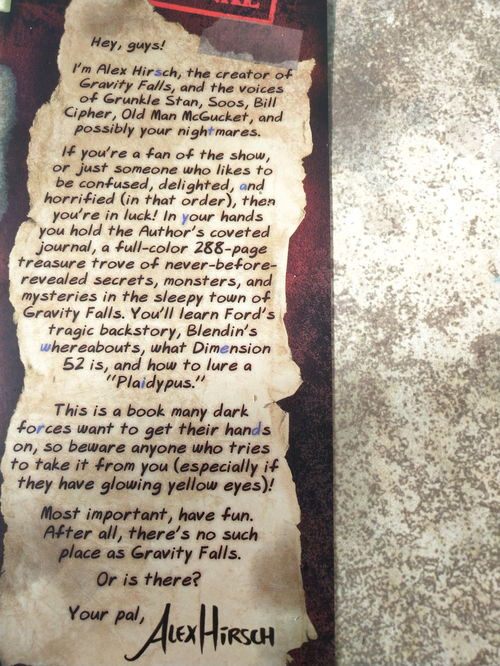 Hey, guys!
I'm Alex Hirsch, the creator of
Gravity Falls, and the voices
of Grunkle Stan, Soos, Bill
Cipher, Old Man McGucket, and
possibly your nightmares.
If you're a fan of the show,
or just someone who likes to
be confused, delighted, and
horrified (in that order), then
you're in luck! In your hands
you hold the Author's coveted
journal, a full-color 288-page
treasure trove of never-before-
revealed secrets, monsters, and
mysteries in the sleepy town of
Gravity Falls. You'll learn Ford's
tragic backstory, Blendin's
whereabouts, what Dimension
52 is, and how to lure a
"Plaidypus."
This is a book many dark
forces want to get their hands
on, so beware anyone who tries
to take it from you (especially if
they have glowing yellow eyes)!
Most important, have fun.
After all, there's no such
place as Gravity Falls.
Or is there?
Your pal,
ALEX HIRSCH